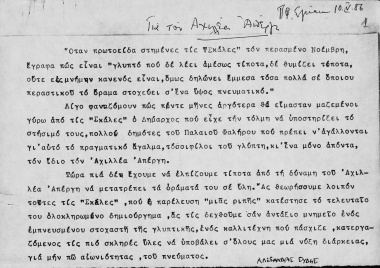 10.V.86
1
Για τον Αχιλλέα Απέργη
"Όταν πρωτοείδα στημένες τίς "Σκάλες" τόν περασμένο Νοέμβρη,
ἔγραφα πώς εἶναι "γλυπτό πού δέ λέει ἀμέσως τίποτα, δέ θυμίζει τίποτα,
οὔτε εἰς μνήμην κανενός εἶναι, ὅμως δηλώνει ἔμμεσα τόσα πολλά σέ ὅποιου
περαστικοῦ τό ὅραμα στοχεύει σ'ἕνα ὕψος πνευματικό."
Λίγο φανταζόμουν πώς πέντε μῆνες ἀργότερα θά εἴμασταν μαζεμένοι
γύρω ἀπό τίς "Σκάλες" ὁ Δήμαρχος πού εἶχε τήν τόλμη νά ὑποστηρίξει τό
στήσιμό τους, πολλοί δημότες τοῦ Παλαιοῦ Φαλήρου πού πρέπει ν'ἀγάλλονται
γι'αὐτό τό πραγματικό ἄγαλμα, τόσοι φίλοι τοῦ γλύπτη, κι'ἕνα μόνο ἀπόντα,
τόν ἴδιο τόν Ἀχιλλέα Ἀπέργη.
Τώρα πιά δέν ἔχουμε νά ἐλπίζουμε τίποτα ἀπό τή δύναμη τοῦ Ἀχιλ-
λέα Ἀπέργη νά μετατρέπει τά ὁράματά του σέ ὕλη. Ἄς θεωρήσουμε λοιπόν
τοῦτες τίς "Σκάλες", πού ἡ παρέλευση "μιᾶς ριπῆς" κατέστησε τό τελευταῖο
του ὁλοκληρωμένο δημιούργημα, ἄς τίς δεχθοῦμε σάν ἀντάξιο μνημεῖο ἑνός
ἐμπνευσμένου στοχαστῆ τῆς γλυπτικῆς, ἑνός καλλιτέχνη πού πάσχισε, κατερ-
γαζόμενος τίς πιό σκληρές ὕλες νά ὑποβάλει σ'ὅλους μας μιά νύξη διάρκειας,
γιά μήν πῶ αἰωνιότητα, τοῦ πνεύματος.
ΑΛΕΞΑΝΔΡΟΣ ΞΥΔΗΣ